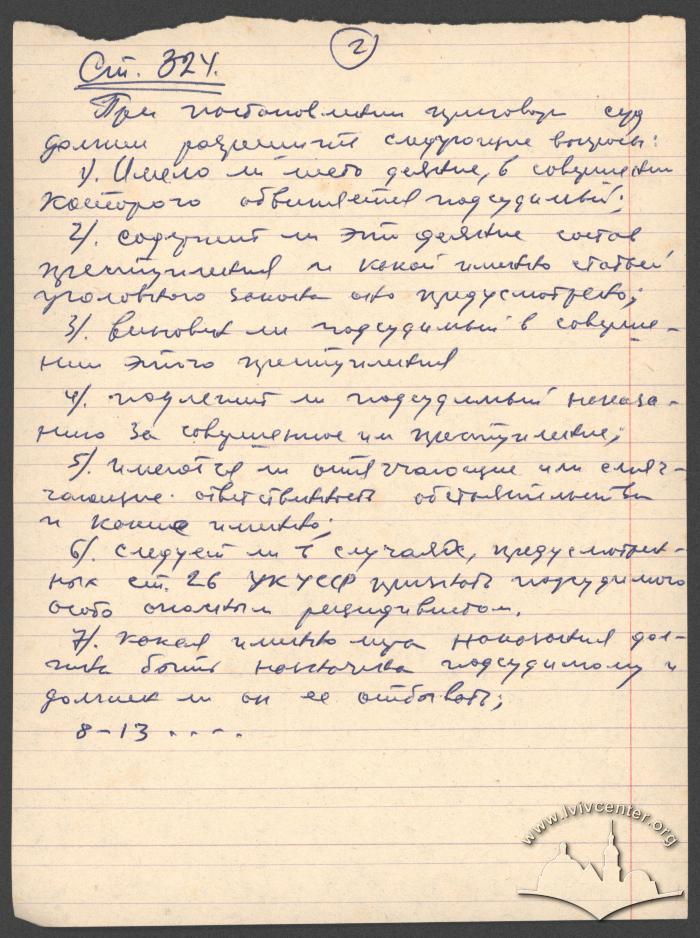 2
Ст. 324.
При постановлении приговора суд
должен разрешить следующие вопросы:
1). Имело ли место деяние, в совершении
которого обвиняется подсудимый;
2). содержит ли это деяние состав
преступления и какой именно статьей
уголовного закона оно предусмотрено;
3). виновен ли подсудимый в соверше-
нии этого преступления
4). подлежит ли подсудимый наказа-
нию за совершенное им преступление;
5). имеются ли отягчающие или смяг-
чающие ответственность обстоятельства
и какие именно;
6). следует ли в случаях, предусмотрен-
ных ст. 26 УК УССР признать подсудимого
особо опасным рецидивистом.
7). какая именно мера наказания дол-
жна быть назначена подсудимому и
должен ли он ее отбывать;
8-13 . . . .
www.lvivcenter.org